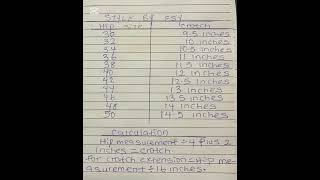 STYLE BY ESY
HIP SIZE CROTCH
30 9.5 inches
32 10 inches
34 10.5 inches
36 11 inches
38 11.5 inches
40 12 inches
42 12.5 inches
44 13 inches
46 13.5 inches
48 14 inches
50 14.5 inches
Calculation
Hip measurement ÷ 4 plus 2
inches = crotch.
For crotch extension = Hip me-
asurement ÷ 16 inches.